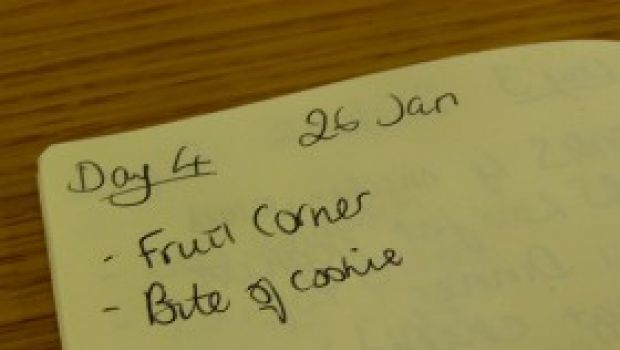 Day 4 26 Jan
- Fruit Corner
- Bite of cookie